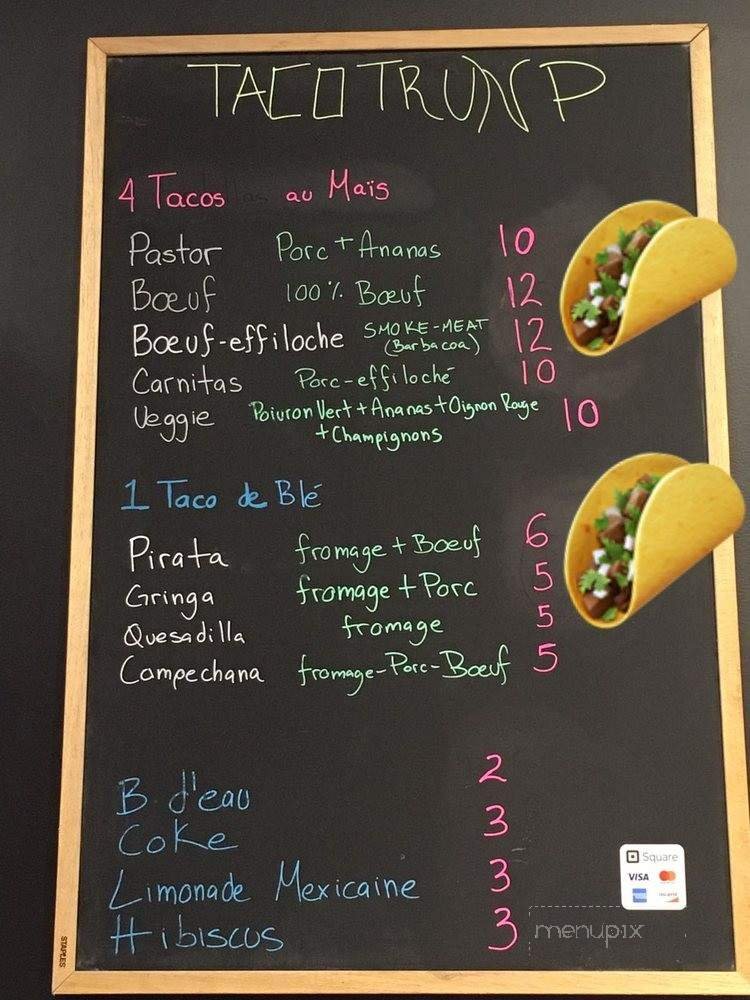 TACO TRUNP
4 Tacos au Maïs
Pastor Porc + Ananas 10
Bœuf 100% Bœuf 12
Bœuf-effiloche SMOKE-MEAT (Barbacoa) 12
Carnitas Porc-effiloché 10
Veggie Poivron Vert + Ananas + Oignon Rouge 10
+ Champignons
1 Taco de Blé
Pirata fromage + Bœuf 6
Gringa fromage + Porc 5
Quesadilla fromage 5
Campechana fromage-Porc-Bœuf 5
B. d'eau 2
Coke 3
Limonade Mexicaine 3
Hibiscus 3
Square
VISA
STAPLES
menupix